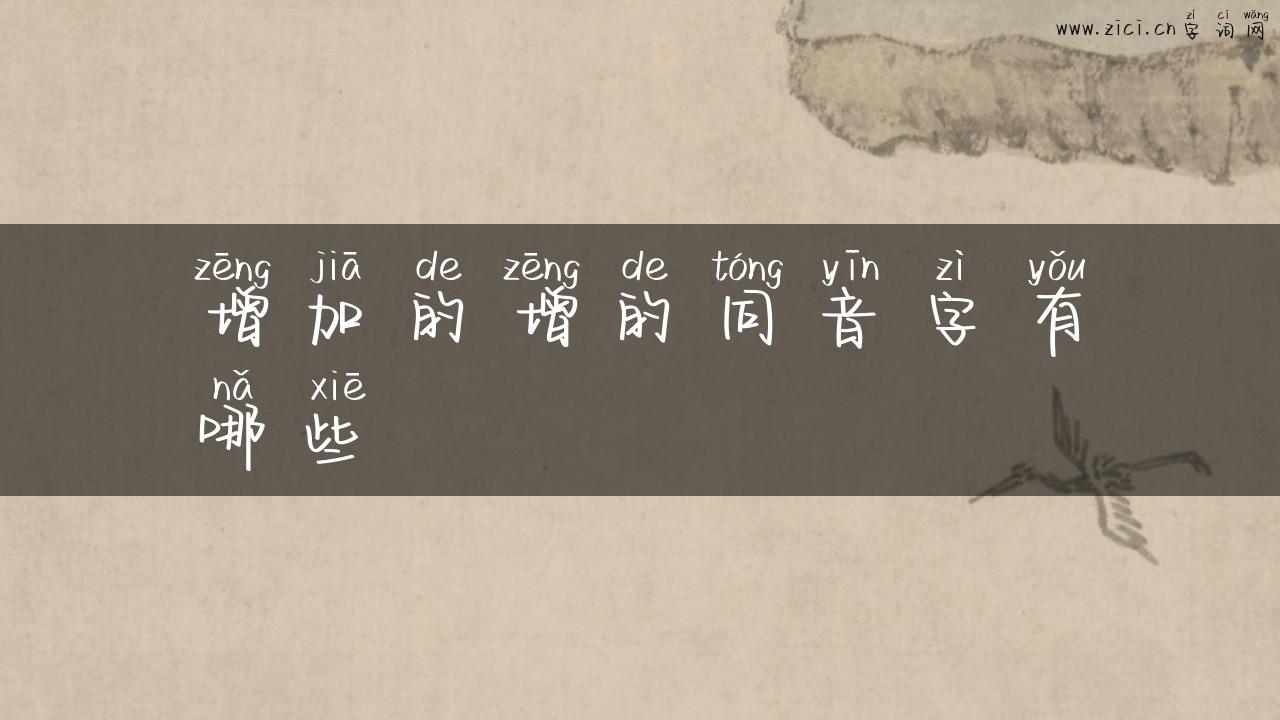 zì cí wǎng
www.zici.cn 字词网
zēng jiā de zēng de tóng yīn zì yǒu
增加的增的同音字有
nǎ xiē
哪些